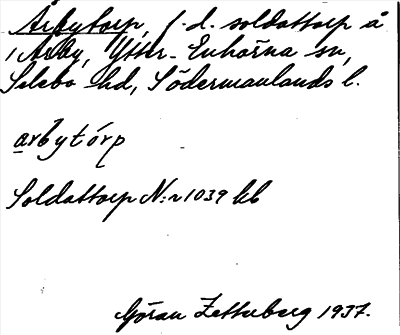 Årbytorp, f.d. soldattorp å
Årby, Ytter-Enhörna sn,
Selebo hd, Södermanlands l.
arbytórp
Soldattorp N:r 1039 kb
Göran Zetterberg 1937.